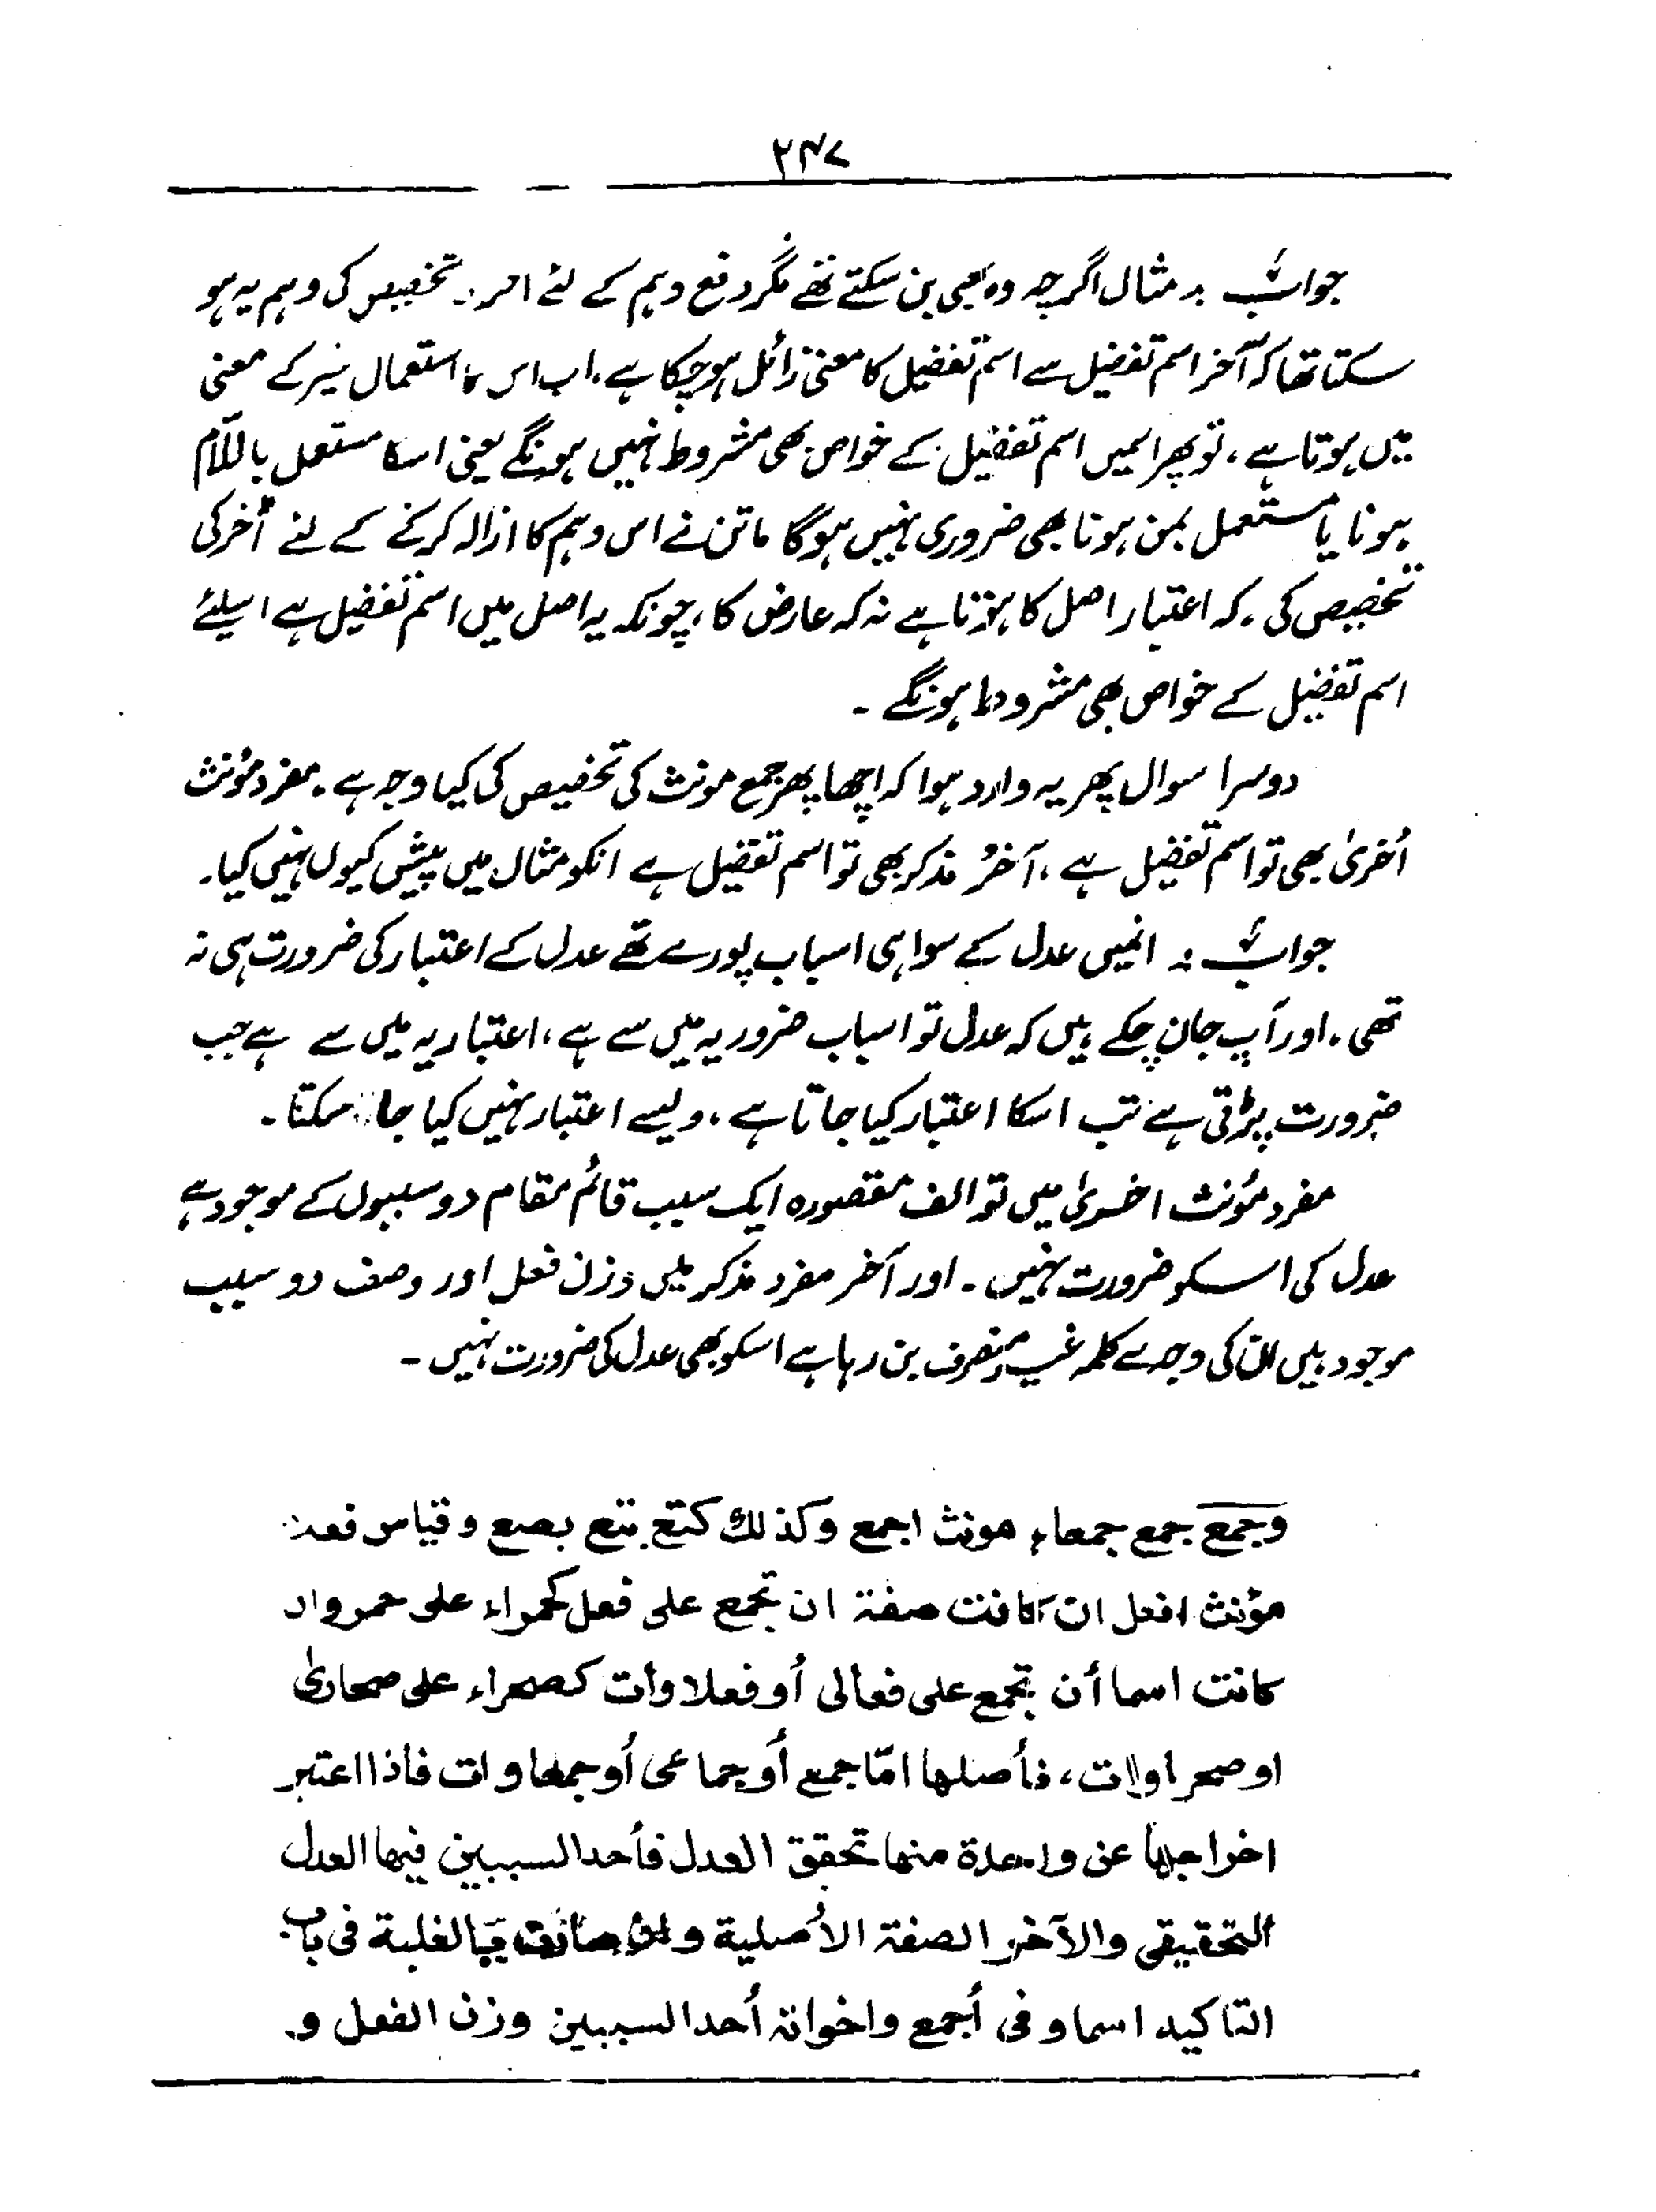 ۲۴۷
جواب :۔ مثال اگرچہ وہ بھی بن سکتے تھے مگر دفع وہم کے لئے اخر کی تخصیص کی وہم یہ ہو
سکتا تھا کہ آخر اسم تفضیل سے اسم تفضیل کا معنی زائل ہو چکا ہے، اب اس کا استعمال غیر کے معنی
میں ہوتا ہے، تو پھر اسمیں اسم تفضیل کے خواص بھی مشروط نہیں ہونگے یعنی اسکا مستعمل باللّام
ہونا یا مستعمل بمن ہونا بھی ضروری نہیں ہوگا ماتن نے اس وہم کا ازالہ کرنے کے لئے اُخر کی
تخصیص کی، کہ اعتبار اصل کا ہوتا ہے نہ کہ عارض کا، چونکہ یہ اصل میں اسم تفضیل ہے اسیلئے
اسم تفضیل کے خواص بھی مشروط ہونگے ۔
دوسرا سوال پھر یہ وارد ہوا کہ اچھا پھر جمع مونث کی تخصیص کی کیا وجہ ہے ۔ مفرد مؤنث
اُخریٰ بھی تو اسم تفضیل ہے، آخرُ مذکر بھی تو اسم تفضیل ہے انکو مثال میں پیش کیوں نہیں کیا۔
جواب :۔ انمیں عدل کے سوا ہی اسباب پورے تھے عدل کے اعتبار کی ضرورت ہی نہ
تھی ۔ اور آپ جان چکے ہیں کہ عدل تو اسباب ضروریہ میں سے ہے، اعتباریہ میں سے ہے جب
ضرورت پڑتی ہے تب اسکا اعتبار کیا جاتا ہے، ویسے اعتبار نہیں کیا جا سکتا ۔
مفرد مؤنث اخریٰ میں تو الف مقصورہ ایک سبب قائم مقام دو سببوں کے موجود ہے
عدل کی اسکو ضرورت نہیں ۔ اور آخر مفرد مذکر میں وزن فعل اور وصف دو سبب
موجود ہیں ان کی وجہ سے کلمہ غیر منصرف بن رہا ہے اسکو بھی عدل کی ضرورت نہیں ۔
وجمع جمع جمعاء مونث اجمع وكذلك كتع بتع بصع وقياس فعلاء
مؤنث افعل ان كانت صفة ان تجمع على فعل كحمراء على حمر وان
كانت اسما أن تجمع على فعالى أو فعلاوات كصحراء على صحارىٰ
او صحراوات، فأصلها امّا جمع أو جماعى أو جمعاوات فاذا اعتبر
اخراجها عن واحدة منها تحقق العدل فأحد السببين فيها العدل
التحقيقى والآخر الصفة الأصلية وان صارت بالغلبة فى باب
التاكيد اسما وفى أجمع واخواته أحد السببين وزن الفعل و